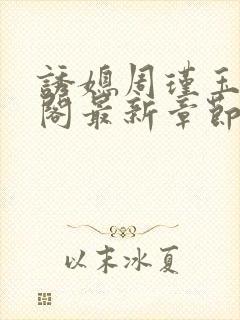 誘媳周瑾玉
閣最新章節
以末冰夏